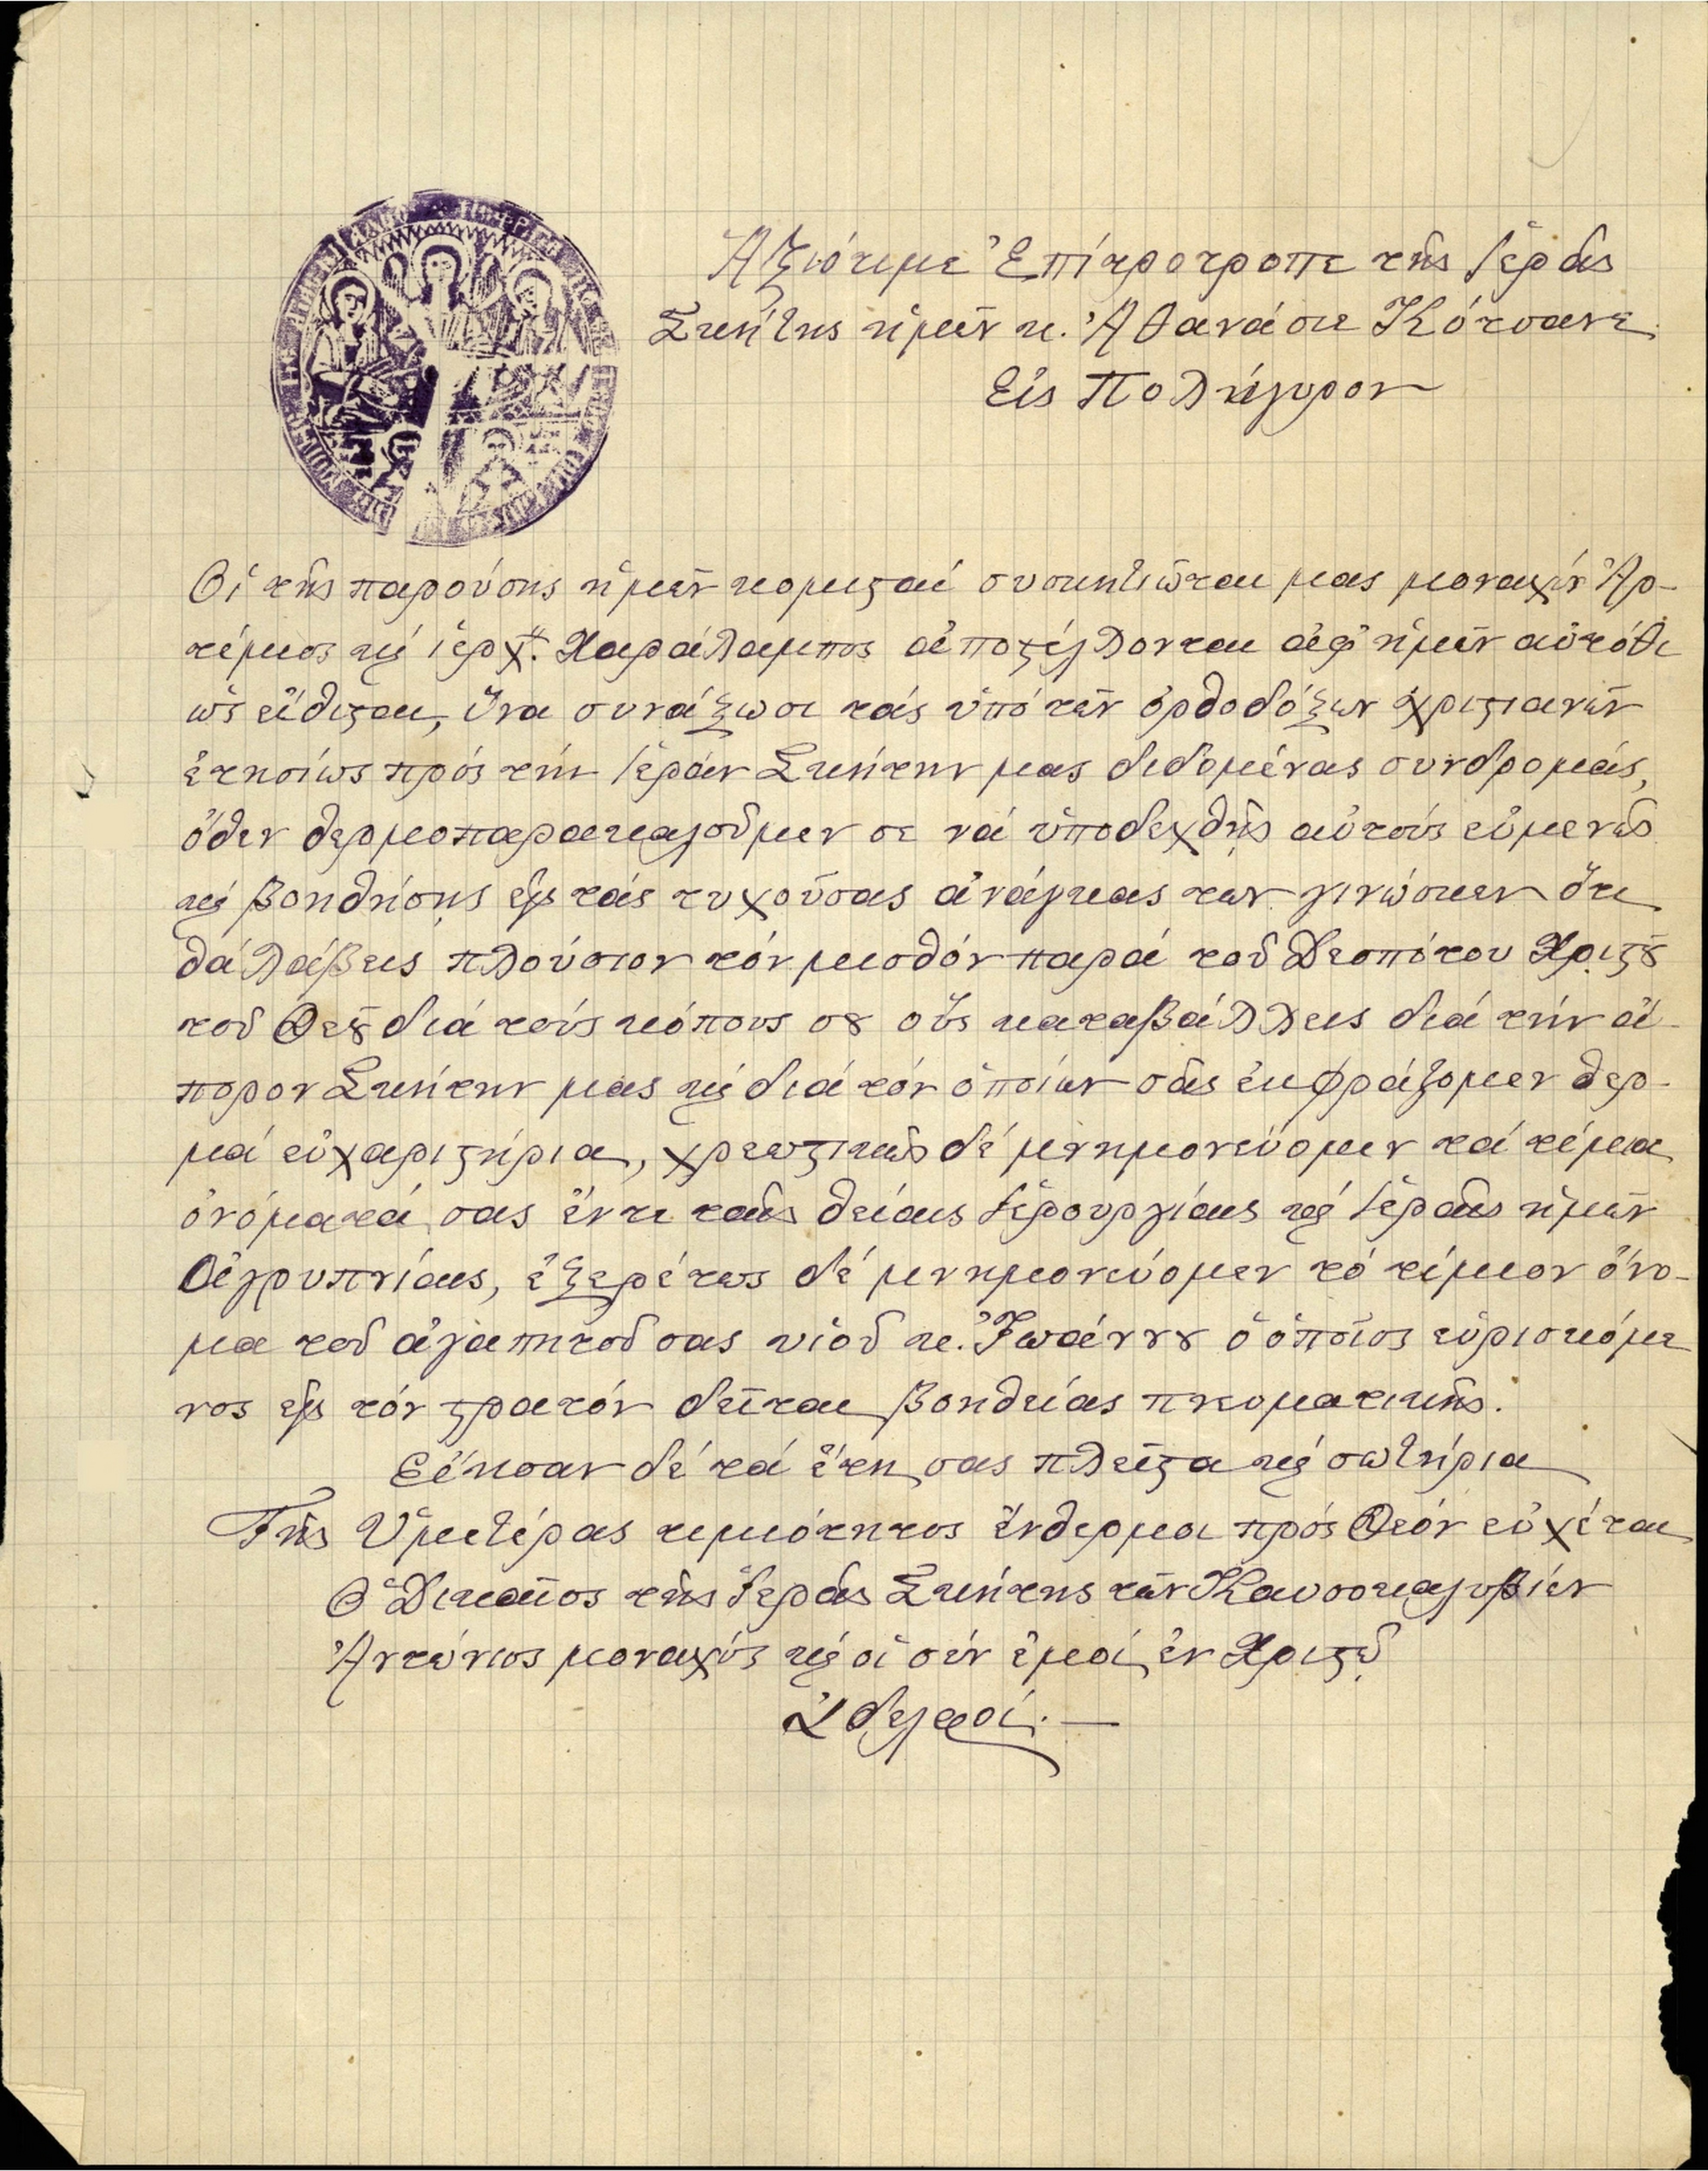 Ἀξιότιμε Ἐπίτροτροπε τῆς Ἱερᾶς
Σκήτης ἡμῶν κ. Ἀθανάσιε Κότσανε
Εἰς Πολύγυρον
Οἱ τῆς παρούσης ἡμῶν κομισταί συσκητιῶται μας μοναχόν Ἀρ-
τέμιος καί ἱερχ. Χαράλαμπος ἀποστέλλονται ἀφ' ἡμῶν αὐτόθι
ὡς εἴθισται, ἵνα συνάξωσι τάς ὑπό τῶν ὀρθοδόξων χριστιανῶν
ἐτησίως πρός τήν Ἱεράν Σκήτην μας διδομένας συνδρομάς,
ὅθεν θερμοπαρακαλοῦμεν σε νά ὑποδεχθῆς αὐτούς εὐμενῶς
καί βοηθήσης εἰς τάς τυχούσας ἀνάγκας των γινώσκων ὅτι
θά λάβεις πλούσιον τόν μισθόν παρά τοῦ Δεσπότου Χριστοῦ
τοῦ Θεοῦ διά τούς κόπους σου οὕς καταβάλλεις διά τήν ἄ-
πορον Σκήτην μας καί διά τόν ὁποίων σᾶς ἐκφράζομεν θερ-
μά εὐχαριστήρια, χρεωστικῶς δέ μνημονεύομεν τά τίμια
ὀνόματά σας ἔντε ταῖς θείαις Ἱερουργίαις καί Ἱεραῖς ἡμῶν
ἀγρυπνίαις, ἐξερέτως δέ μνημονεύομεν τό τίμιον ὄνο-
μα τοῦ ἀγαπητοῦ σας υἱοῦ κ. Ἰωάννου ὁ ὁποῖος εὑρισκόμε
νος εἰς τόν στρατόν δεῖται βοηθείας πνευματικῆς.
Εἴησαν δέ τά ἔτη σας πλεῖστα καί σωτήρια
Τῆς Ὑμετέρας τιμιότητος ἔνθερμοι πρός Θεόν εὐχέται
Ὁ Δικαῖος τῆς Ἱερᾶς Σκήτης τῶν Καυσοκαλυβίων
Ἀντώνιος μοναχός καί οἱ σύν ἐμοί ἐν Χριστῷ
Ἀδελφοί.—